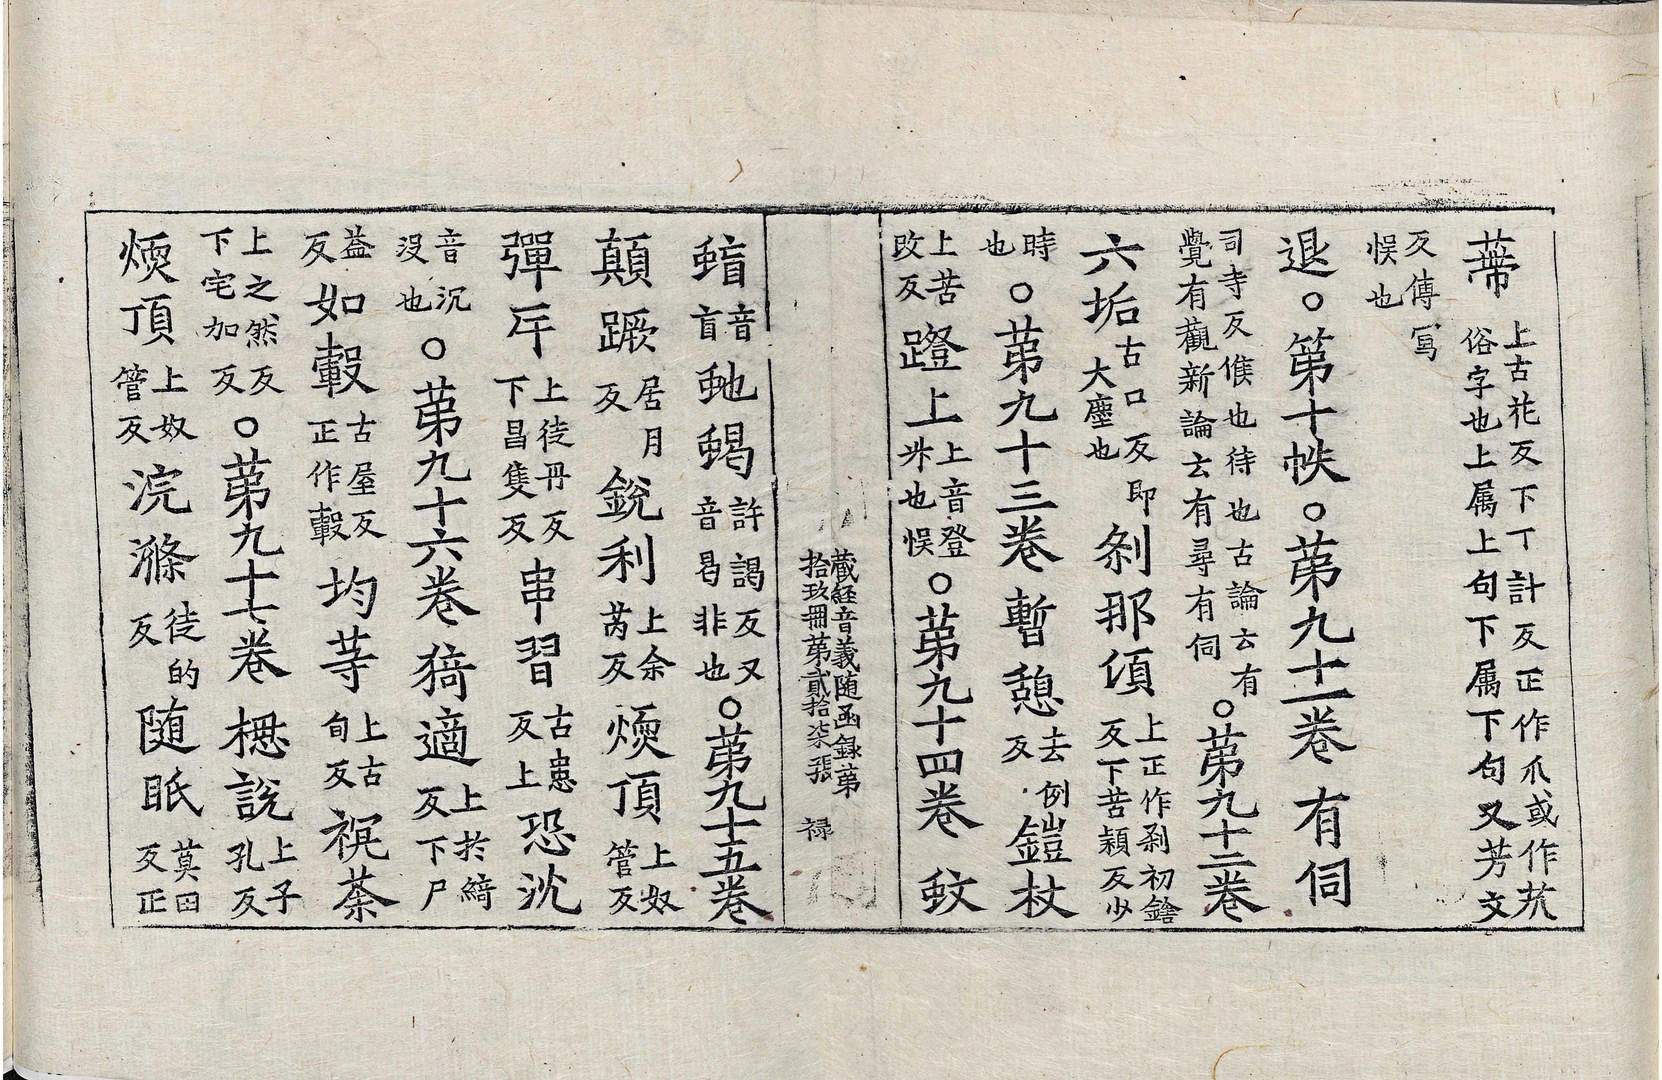 蔕上古花反下丁計反正作爪或作苽俗字也上属上句下属下句又芳文
反傳寫悮也
退○第十帙○第九十一卷有伺
司寺反候也待也古論云有覺有觀新論云有尋有伺○第九十二卷
六垢古口反即大塵也剎那頃上正作刹初鎋反下苦穎反少
時也○第九十三卷暫憩去例反鎧杖
上苦改反蹬上上音登升也悮○第九十四卷蚊
䗈音盲虵蝎許謁反又音曷非也○第九十五卷
藏経音義随函録第拾玖冊第貳拾柒張 禄
顛蹶居月反銳利上余芮反煗頂上奴管反
彈斥上徒丹反下昌隻反串習古患反上恐沈
音沉沒也○第九十六卷猗適上於綺反下尸
益反如轂古屋反正作轂均等上古旬反祺荼
上之然反下宅加反○第九十七卷摠説上子孔反
煗頂上奴管反浣滌徒的反随眠莫田反正